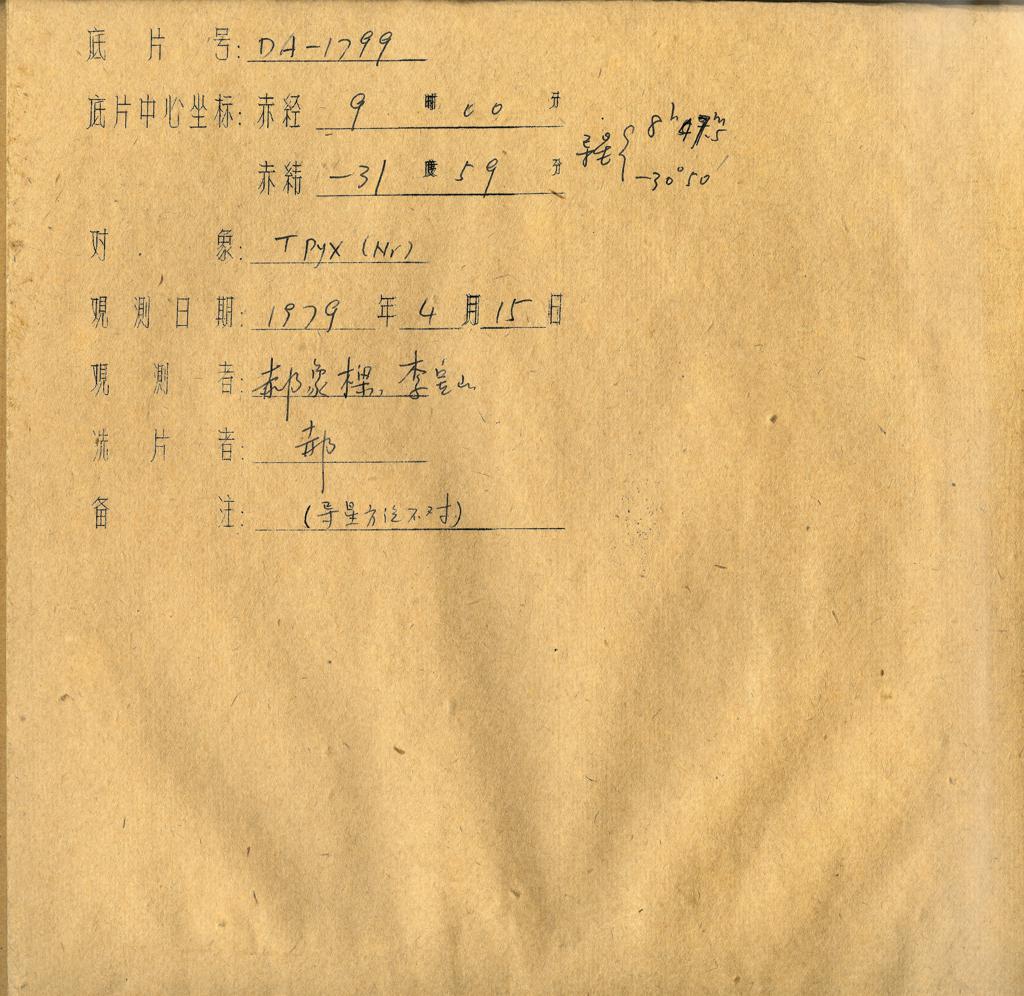 底片号: DA-1799
底片中心坐标: 赤经 9 時 00 分
赤緯 -31 度 59 分
导星 { 8h 47m.5
-30°50′
对象: T Pyx (Nr)
观測日期: 1979 年 4 月 15 日
观測者: 郝象樑, 李
洗片者: 郝
备注: (导星方位不对)